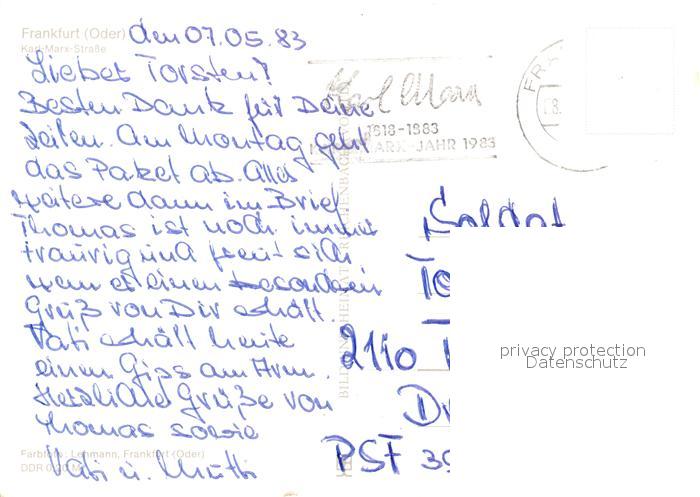 Frankfurt (Oder)
Karl-Marx-Straße
den 07.05.83
Lieber Torsten!
Besten Dank für Deine
Zeilen. Am Montag geht
das Paket ab. Alles
weitere dann im Brief
Thomas ist noch immer
traurig und freut sich
wenn er einen besonderen
Gruß von Dir erhält.
Vati erhält heute
einen Gips am Arm.
Herzliche Grüße von
Thomas sowie
Vati u. Mutti
Farbfoto: Lehmann, Frankfurt (Oder)
DDR
Karl Marx
1818-1883
MARX-JAHR 1983
FRA
Soldat
To
2110
PSF 30
privacy protection
Datenschutz